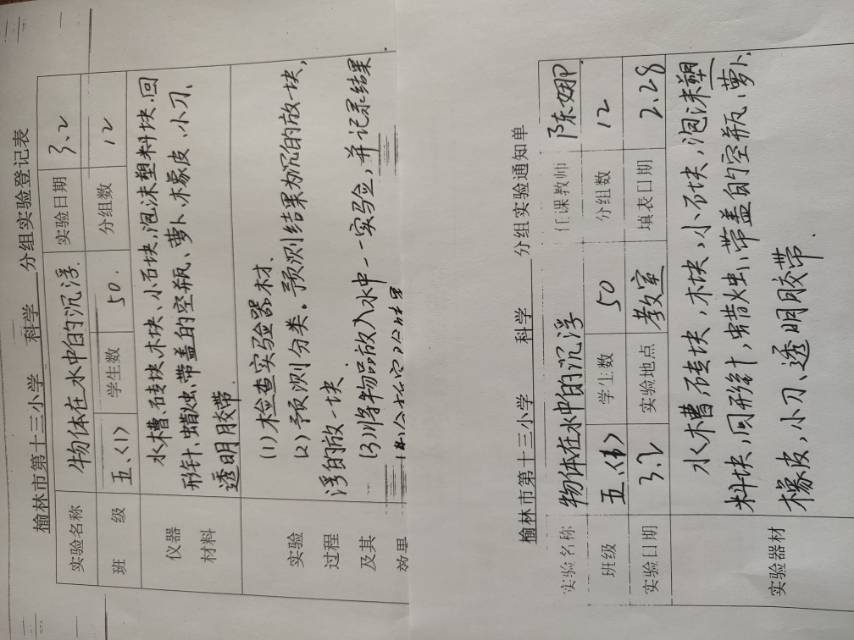 榆林市第十三小学 科学 分组实验登记表
实验名称 物体在水中的沉浮 实验日期 3.2
班级 五、(1) 学生数 50. 分组数 12
仪器材料 水槽、砖块、木块、小石块、泡沫塑料块、回
形针、蜡烛、带盖的空瓶、萝卜、橡皮、小刀、
透明胶带.
实验 (1)检查实验器材.
过程 (2)预测分类。预测结果为沉的放一块,
及其 浮的放一块
效果 (3)将物品放入水中一一实验,并记录结果.
榆林市第十三小学 科学 分组实验通知单
实验名称 物体在水中的沉浮 任课教师 陈娜
班级 五、 学生数 50 分组数 12
实验日期 3.2 实验地点 教室 填表日期 2.28
实验器材 水槽、砖块、木块、小石块、泡沫塑
料块、回形针、蜡烛、带盖的空瓶、萝卜、
橡皮、小刀、透明胶带.